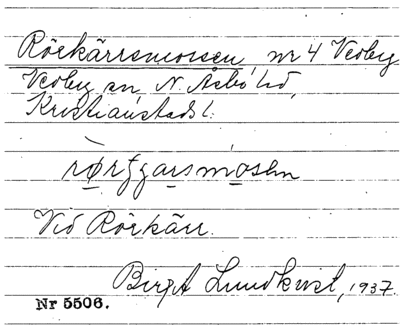 Rörkärrsmossen, nr 4 Vedby
Vedby sn, N. Åsbo hd,
Kristianstads l.
rørʒgarsmosen
Vid Rörkärr.
Birgit Lundkvist, 1937.
Nr 5506.